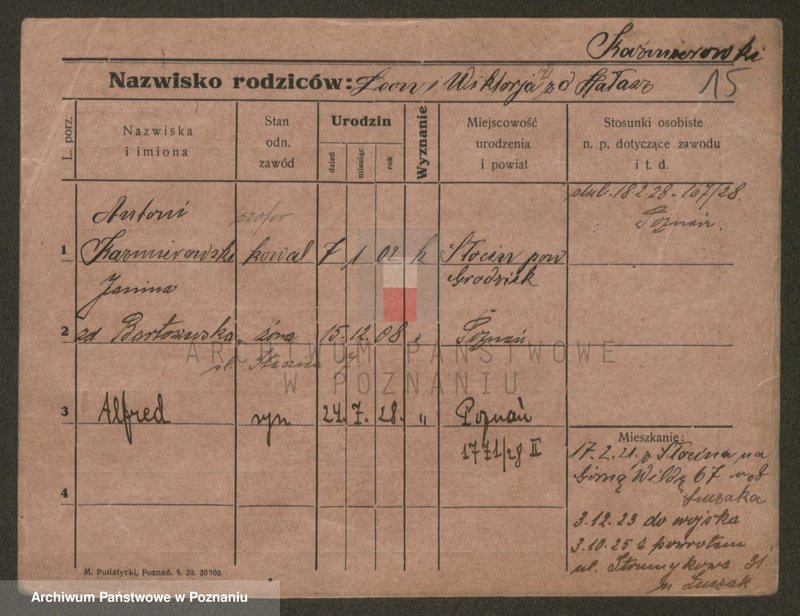 Kaźmierowski
Nazwisko rodziców: Leon i Wiktorja zd Hałasz 15
L. porz.
Nazwiska i imiona
Stan odn. zawód
Urodzin
dzień
miesiąc
rok
Wyznanie
Miejscowość urodzenia i powiat
Stosunki osobiste n. p. dotyczące zawodu i t. d.
ślub. 18 2.28. 167/28.
Poznań.
Antoni
1 Kaźmierowski kowal 7 1 02 k Słocin pow
Grodzisk
Janina
2 zd żona 15. 12. 08 „ Poznań
ARCHIWUM PAŃSTWOWE
W POZNANIU
3 Alfred syn 24. 7. 28. „ Poznań
1771/28 II
4
Mieszkanie:
17.2.21. z Słocina na
Górną Wildę 67 u
Łuczaka
3.12.23 do wojska
3.10.25 z powrotem
ul. Strumykowa 31.
u Łuczak
M. Putiatycki, Poznań. 9. 26. 20000.
Archiwum Państwowe w Poznaniu